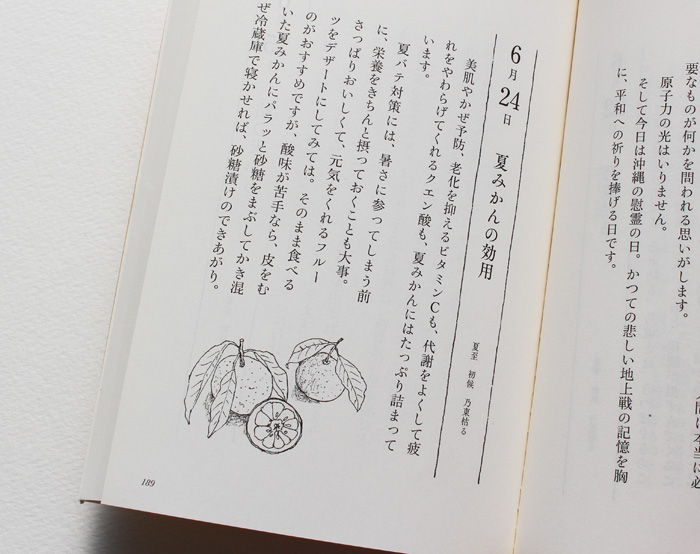 要なものが何かを問われる思いがします。
原子力の光はいりません。
そして今日は沖縄の慰霊の日。かつての悲しい地上戦の記憶を胸
に、平和への祈りを捧げる日です。
6月24日 夏みかんの効用
夏至 初候 乃東枯る
美肌やかぜ予防、老化を抑えるビタミンCも、代謝をよくして疲
れをやわらげてくれるクエン酸も、夏みかんにはたっぷり詰まって
います。
夏バテ対策には、暑さに参ってしまう前
に、栄養をきちんと摂っておくことも大事。
さっぱりおいしくて、元気をくれるフルー
ツをデザートにしてみては。そのまま食べる
のがおすすめですが、酸味が苦手なら、皮をむ
いた夏みかんにパラッと砂糖をまぶしてかき混
ぜ冷蔵庫で寝かせれば、砂糖漬けのできあがり。
189